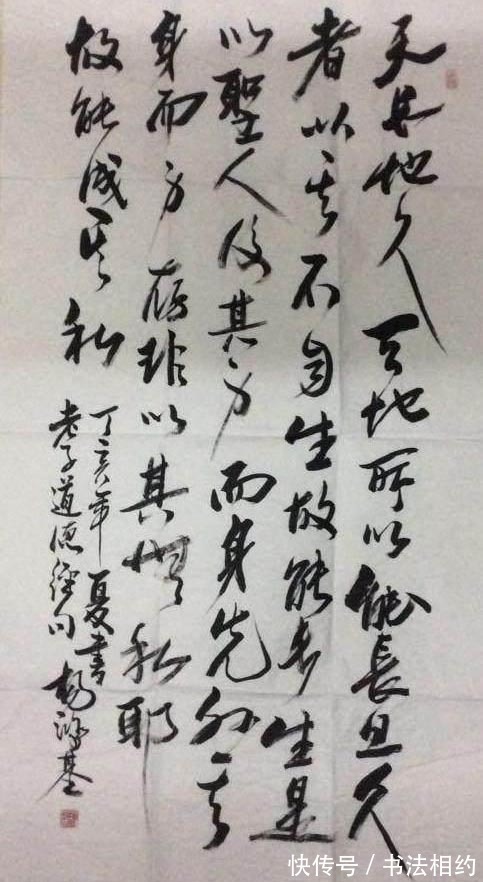 天長地久天地所以能長且久
者以其不自生故能長生是
以聖人後其身而身先外其
身而身存非以其無私耶
故能成其私
丁亥年夏書
老子道德經句 楊洪基
快传号 / 书法相约